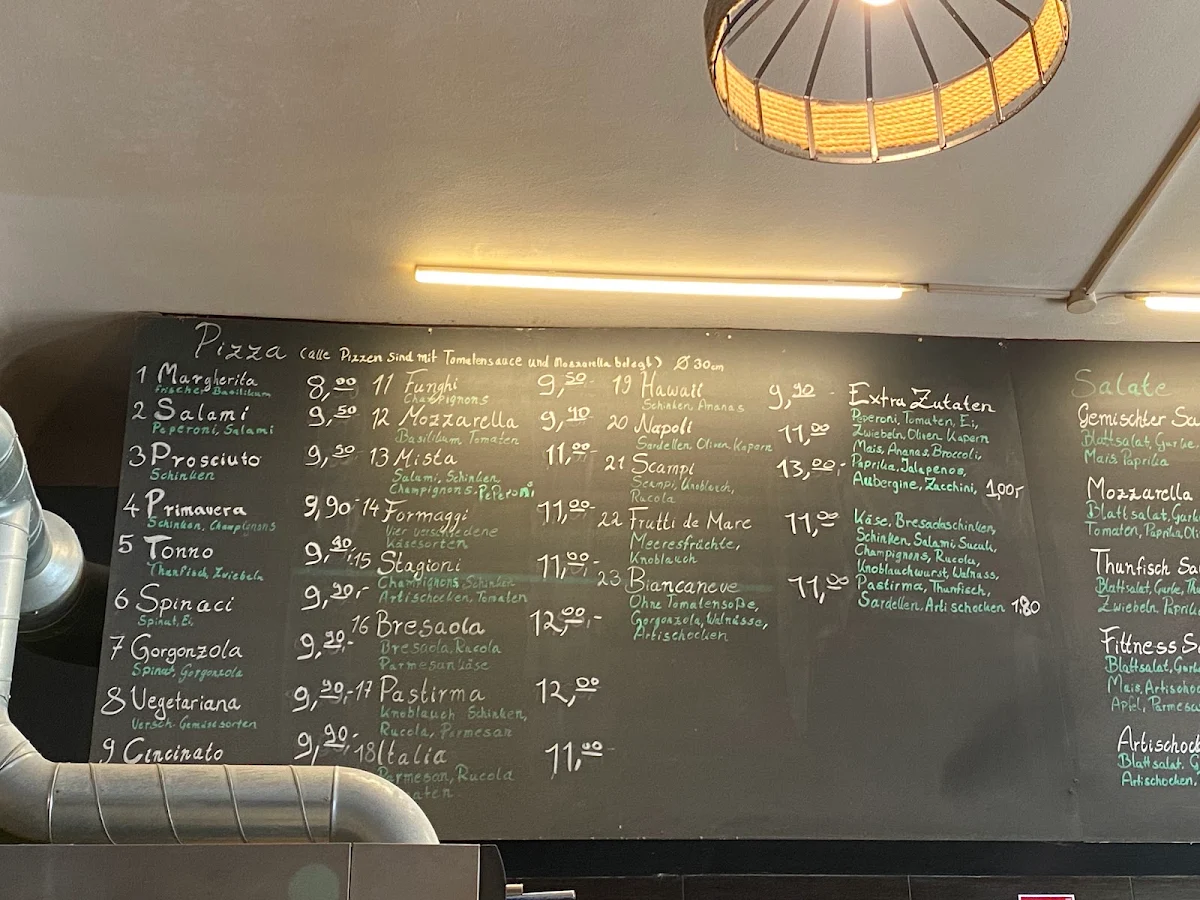 Pizza (alle Pizzen sind mit Tomatensauce und Mozzarella belegt) Ø 30cm
1 Margherita 8,00
frischer Basilikum
2 Salami 9,50
Peperoni, Salami
3 Prosciuto 9,50
Schinken
4 Primavera 9,90
Schinken, Champignons
5 Tonno 9,90,-
Thunfisch, Zwiebeln
6 Spinaci 9,90,-
Spinat, Ei
7 Gorgonzola 9,90,-
Spinat, Gorgonzola
8 Vegetariana 9,90,-
Versch. Gemüsesorten
9 Cincinato 9,90,-
11 Funghi 9,50-
Champignons
12 Mozzarella 9,90-
Basilikum Tomaten
13 Mista 11,00-
Salami, Schinken
Champignons, Peperoni
14 Formaggi 11,00-
Vier verschiedene
Käsesorten
15 Stagioni 11,00,-
Champignons, Schinken
Artischocken, Tomaten
16 Bresaola 12,00,-
Bresaola, Rucola
Parmesankäse
17 Pastirma 12,00
Knoblauch Schinken,
Rucola, Parmesan
18 Italia 11,00
Parmesan, Rucola
19 Hawaii 9,90-
Schinken, Ananas
20 Napoli 11,00
Sardellen, Oliven, Kapern
21 Scampi 13,00,-
Scampi, Knoblauch,
Rucola
22 Frutti de Mare 11,00
Meeresfrüchte,
Knoblauch
23 Biancaneve 11,00
Ohne Tomatensoße,
Gorgonzola, Walnüsse,
Artischocken
Extra Zutaten
Peperoni, Tomaten, Ei,
Zwiebeln, Oliven, Kapern
Mais, Ananas, Broccoli,
Paprika, Jalapenos,
Aubergine, Zucchini,
Käse, Bresaolaschinken,
Schinken, Salami, Sucuk,
Champignons, Rucola,
Knoblauchwurst, Walnuss,
Pastirma, Thunfisch,
Sardellen, Artischocken 1,80
Salate
Gemischter Sa
Blattsalat, Gurke
Mais, Paprika
Mozzarella
Blattsalat, Gurke
Tomaten, Paprika, Oli
Thunfisch Sa
Blattsalat, Gurke, Th
Zwiebeln, Paprika
Fittness Sa
Blattsalat, Gurke
Mais, Artischo
Apfel, Parmesa
Artischock
Blattsalat, G
Artischocken,